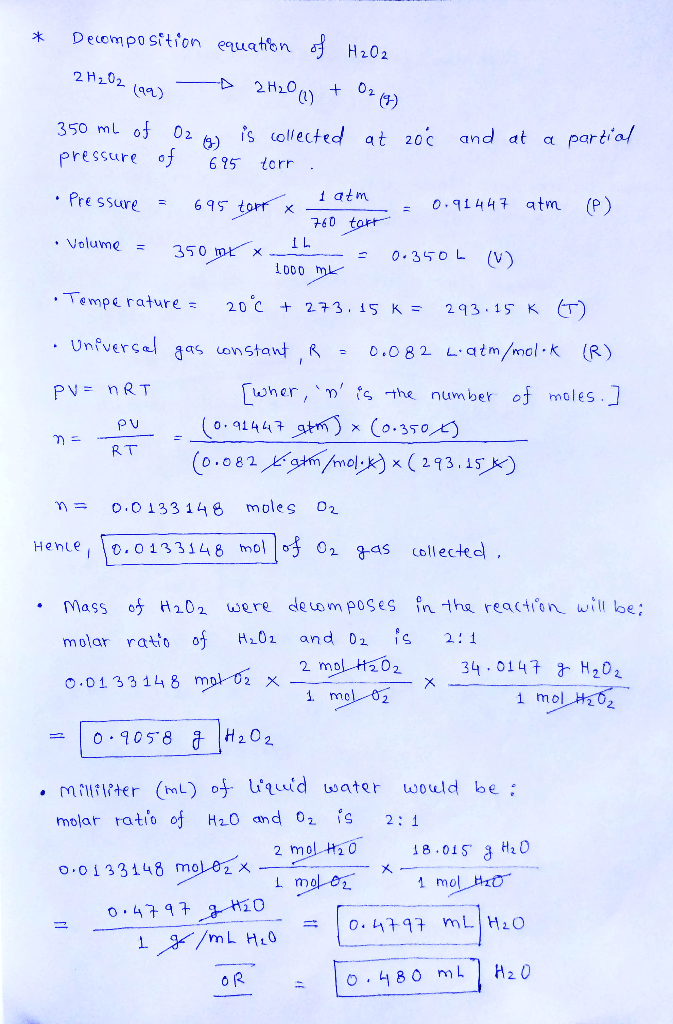 * Decomposition equation of H2O2
2 H2O2 (aq) → 2 H2O (l) + O2 (g)
350 mL of O2 (g) is collected at 20°c and at a partial
pressure of 695 torr .
• Pressure = 695 torr x 1 atm / 760 torr = 0.91447 atm (P)
• Volume = 350 mL x 1 L / 1000 mL = 0.350 L (V)
• Temperature = 20°C + 273.15 K = 293.15 K (T)
• Universal gas constant, R = 0.082 L.atm/mol.K (R)
PV = nRT [wher, 'n' is the number of moles.]
n = PV / RT = (0.91447 atm) x (0.350 L) / (0.082 L.atm/mol.K) x (293.15 K)
n = 0.0133148 moles O2
Hence, 0.0133148 mol of O2 gas collected.
• Mass of H2O2 were decomposes in the reaction will be:
molar ratio of H2O2 and O2 is 2:1
0.0133148 mol O2 x 2 mol H2O2 / 1 mol O2 x 34.0147 g H2O2 / 1 mol H2O2
= 0.9058 g H2O2
• Milliliter (mL) of liquid water would be :
molar ratio of H2O and O2 is 2:1
0.0133148 mol O2 x 2 mol H2O / 1 mol O2 x 18.015 g H2O / 1 mol H2O
= 0.4797 g H2O / 1 g/mL H2O = 0.4797 mL H2O
OR = 0.480 mL H2O